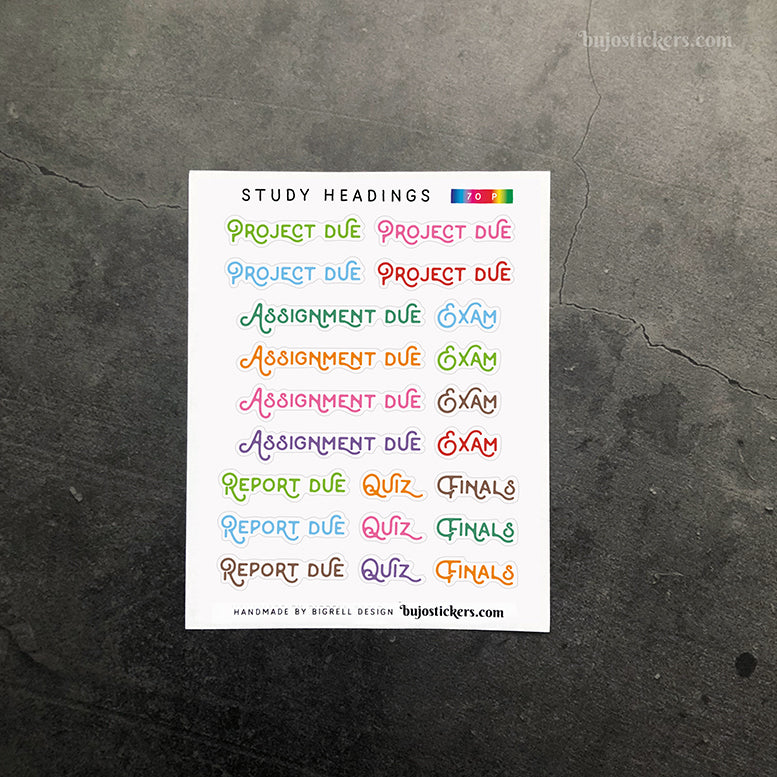 bujostickers.com
STUDY HEADINGS 70 P
PROJECT DUE PROJECT DUE
PROJECT DUE PROJECT DUE
ASSIGNMENT DUE EXAM
ASSIGNMENT DUE EXAM
ASSIGNMENT DUE EXAM
ASSIGNMENT DUE EXAM
REPORT DUE QUIZ FINALS
REPORT DUE QUIZ FINALS
REPORT DUE QUIZ FINALS
HANDMADE BY BIGRELL DESIGN bujostickers.com
bujostickers.com